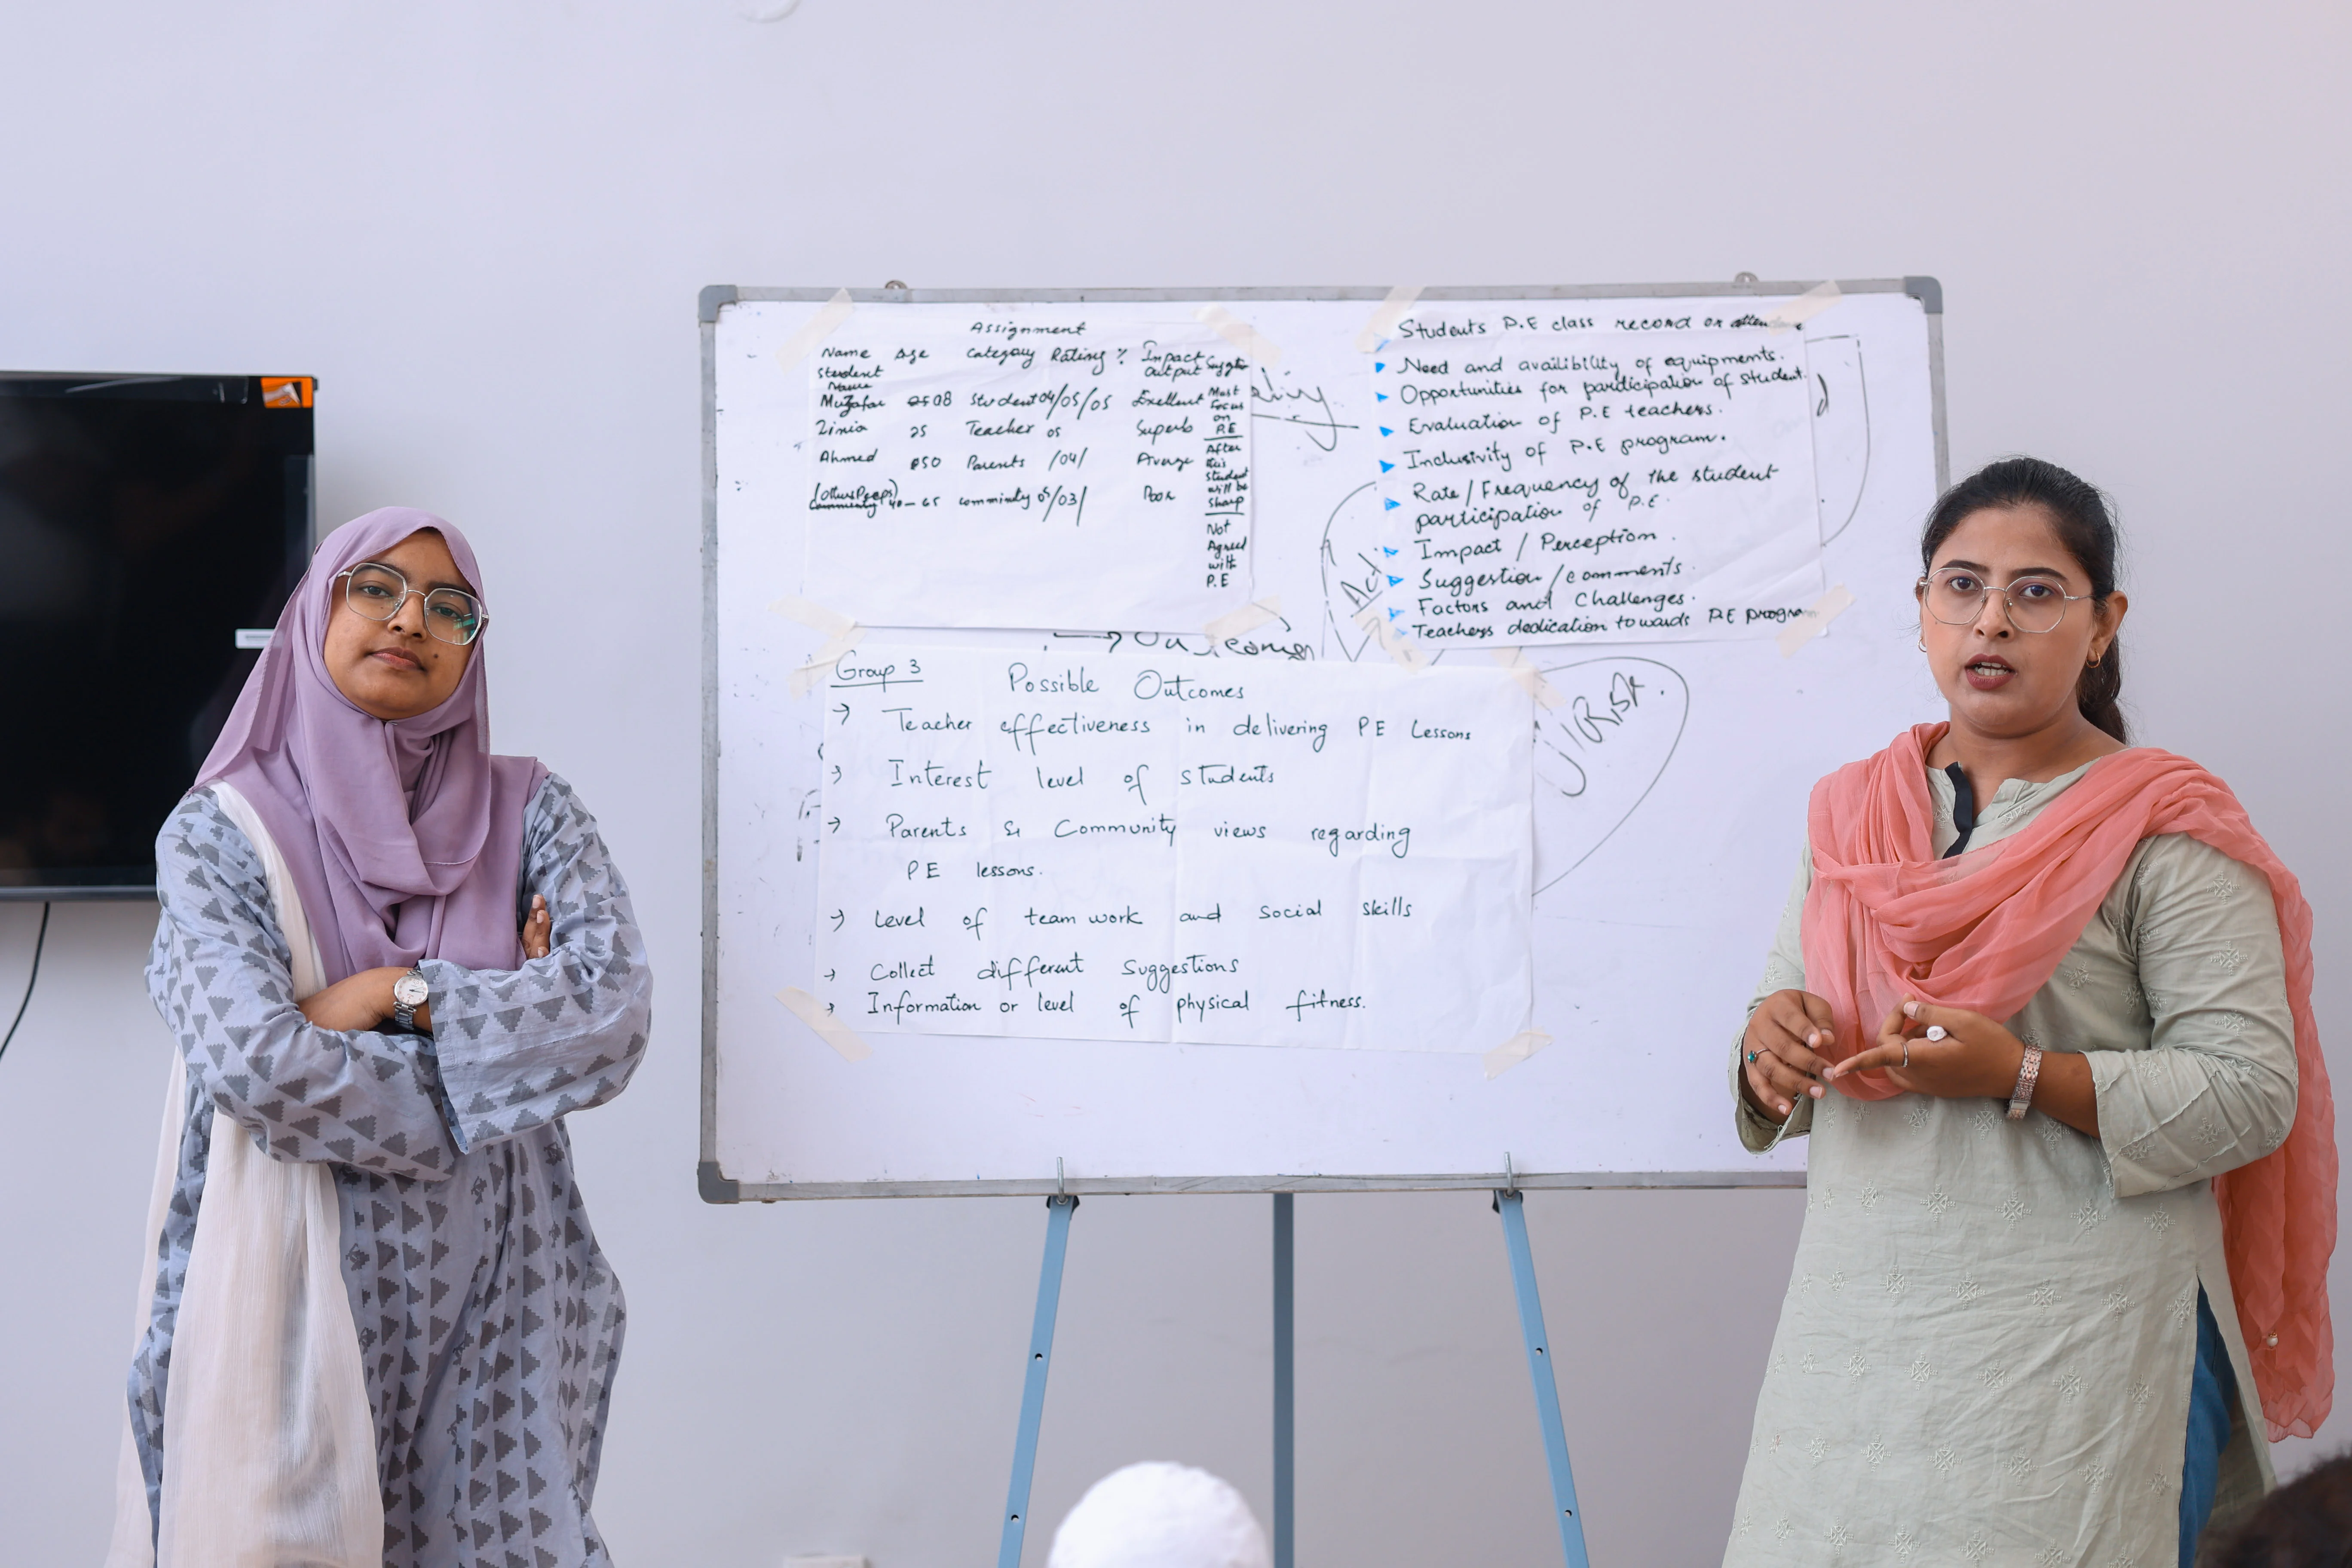 Assignment
Name Age Category Rating % Impact
Student output
Name
Muzafar 08 Student 04/05/05 Exellent Must
Focus
on
P.E
Zinia 25 Teacher 05 Superb
Ahmed 50 Parents /04/ Average After
this
student
will be
sharp
Community 40-65 05/03/ Poor
Not
Agreed
with
P.E
Students P.E class record or
Need and availibility of equipments.
Opportunities for participation of student.
Evaluation of P.E teachers.
Inclusivity of P.E program.
Rate/Frequency of the student
participation of P.E.
Impact / Perception.
Suggestion/comments.
Factors and Challenges.
Teachers dedication towards P.E program
Group 3 Possible Outcomes
→ Teacher effectiveness in delivering PE Lessons
→ Interest level of students
→ Parents & Community views regarding
PE lessons.
→ Level of team work and social skills
→ Collect different suggestions
→ Information or level of physical fitness.